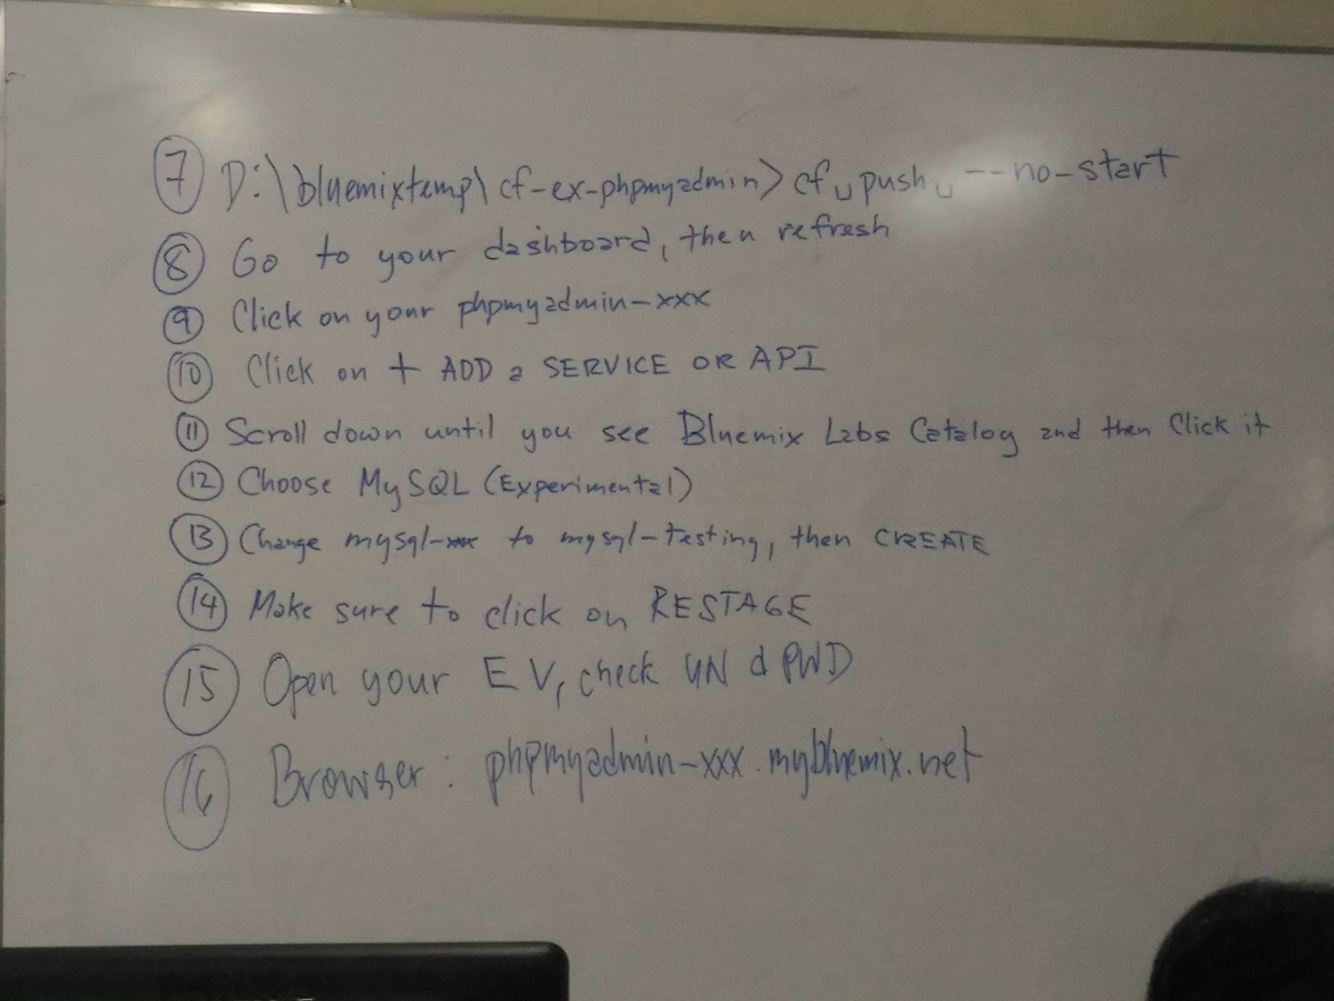 7 D:\bluemixtemp\cf-ex-phpmyadmin>cf␣push␣--no-start
8 Go to your dashboard, then refresh
9 Click on your phpmyadmin-xxx
10 Click on + ADD a SERVICE OR API
11 Scroll down until you see Bluemix Labs Catalog and then Click it
12 Choose MySQL (Experimental)
13 Change mysql-xxx to mysql-testing, then CREATE
14 Make sure to click on RESTAGE
15 Open your EV, check UN & PWD
16 Browser: phpmyadmin-xxx.mybluemix.net